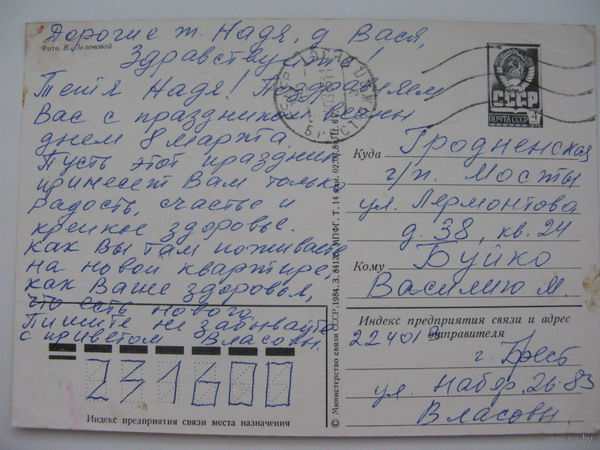 Дорогие т. Надя, д. Вася,
Фото В. Зеленовой
Здравствуйте!
Тетя Надя! Поздравляем
Вас с праздником весны
днем 8 Марта.
Пусть этот праздник
принесет Вам только
радость, счастье и
крепкое здоровье.
Как Вы там поживаете
на новой квартире,
как Ваше здоровья,
что есть нового
Пишите не забывайте
с приветом Власовы.
231600
Индекс предприятия связи места назначения
© Министерство связи СССР, 1984. З. 84138. МПФГ. Т. 14
СССР
ПОЧТА СССР
БРЕСТ
Куда Гродненская
г/п. Мосты
ул. Лермонтова
д. 38, кв. 24
Кому Буйко
Василию М.
Индекс предприятия связи и адрес
отправителя
г. Брест
ул. Набер. 26-83
Власовы.